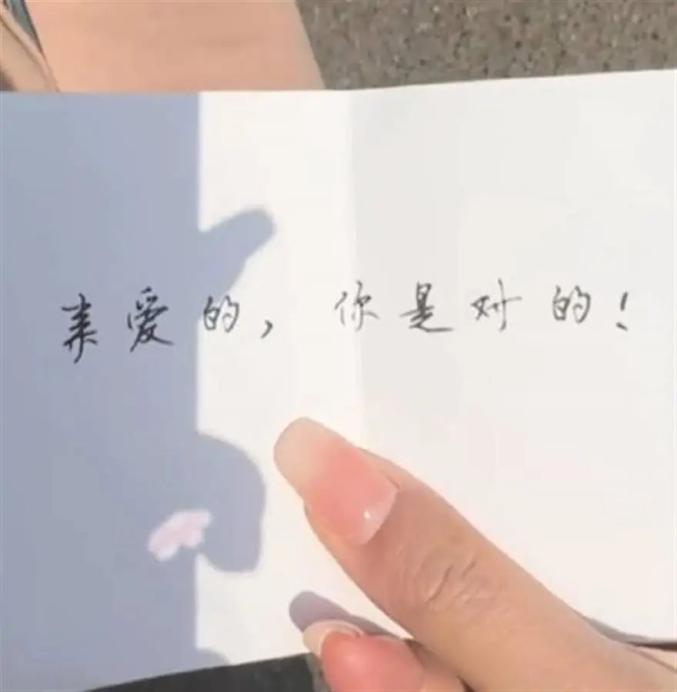 亲爱的，你是对的！